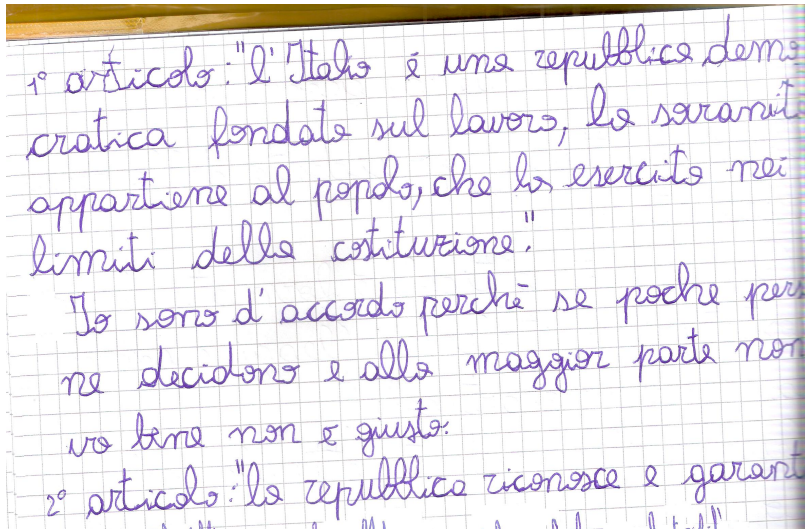 1° articolo: "l'Italia è una repubblica demo
cratica fondata sul lavoro, la sovranit
appartiene al popolo, che la esercita nei
limiti della costituzione."
Io sono d'accordo perchè se poche pers
ne decidono e alla maggior parte non
va bene non è giusto.
2° articolo: "la repubblica riconosce e garant